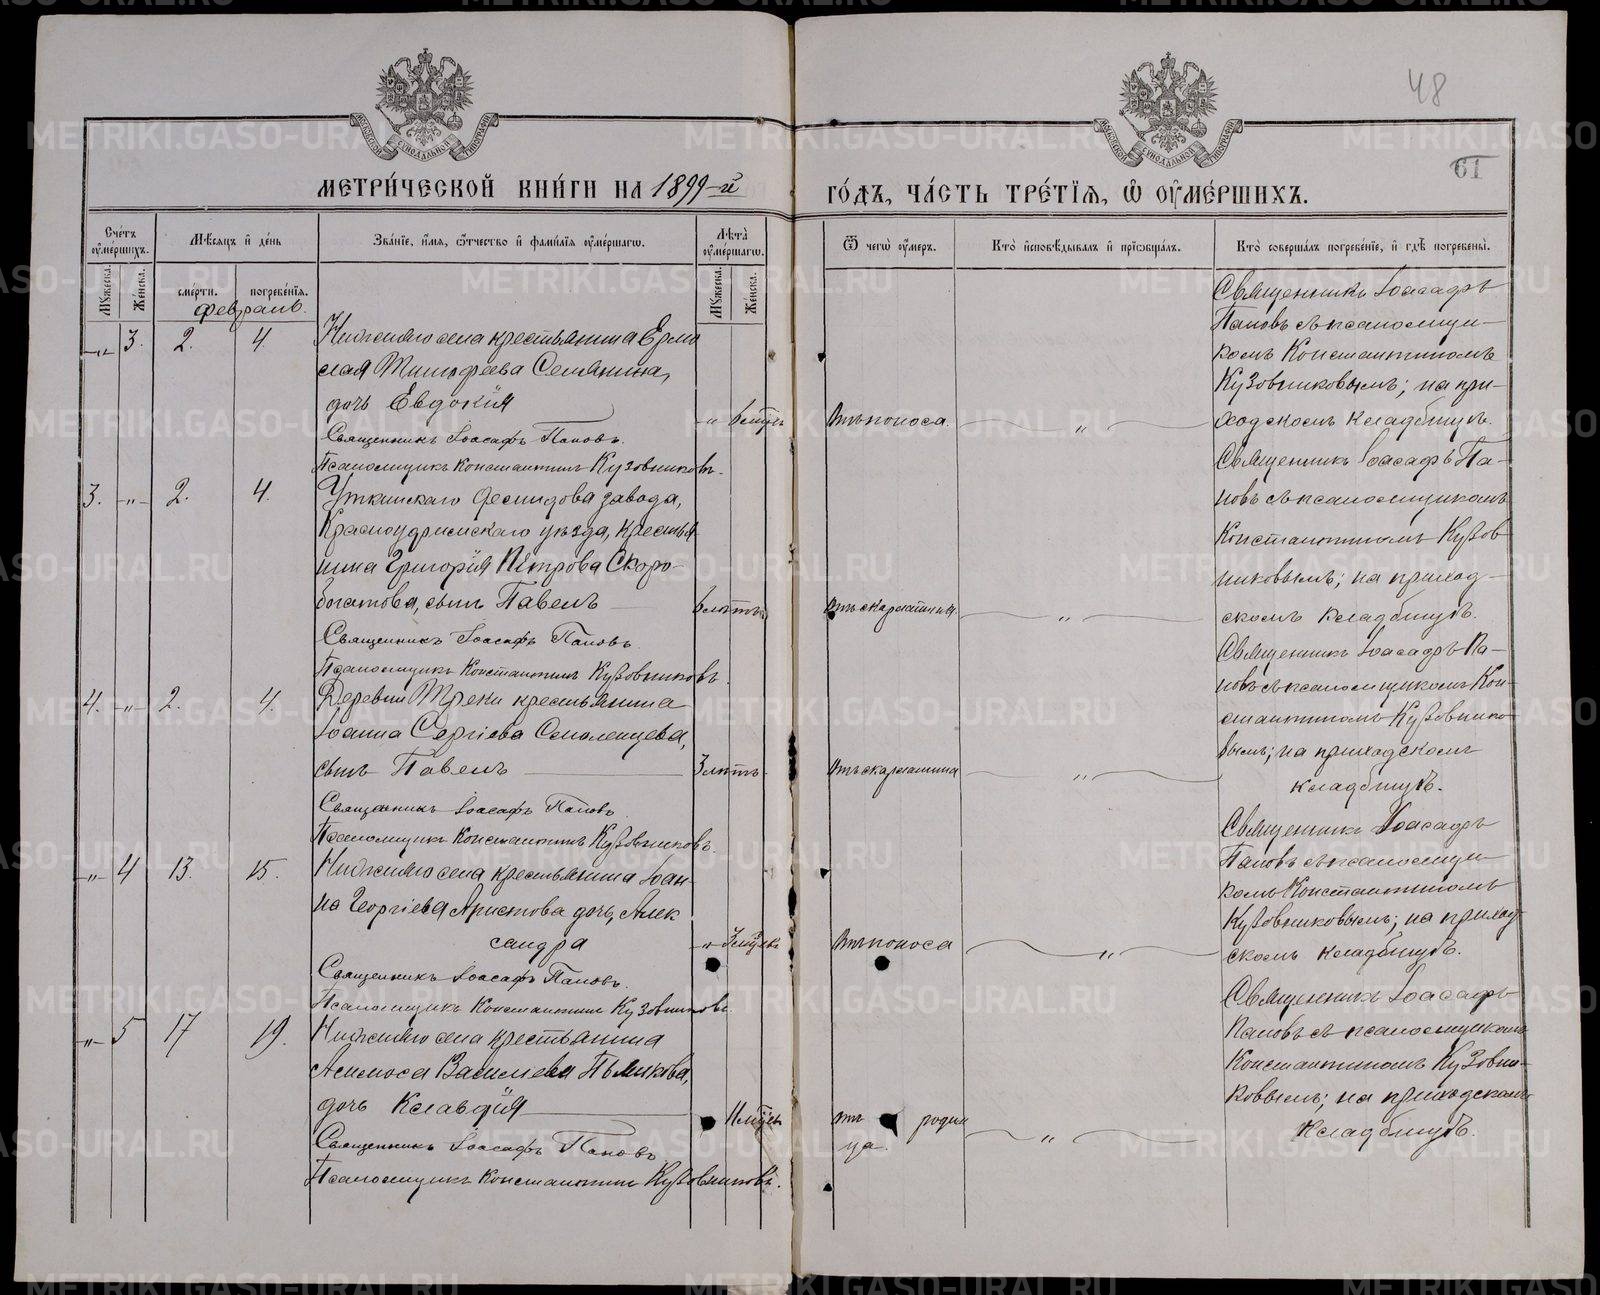 48
61
МЕТРИ́ЧЕСКОЙ КНИ́ГИ НА 1899-й
ГО́ДЪ, ЧА́СТЬ ТРЕ́ТІЯ, Ѿ ОУ҆МЕ́РШИХЪ.
Сче́тъ оу҆ме́ршихъ.
Мꙋжеска.
Же́нска.
Мѣ́сяцъ и҆ де́нь
сме́рти.
погребе́нїя.
Зва́нїе, и҆́мя, ѻ҆́тчество и҆ фами́лїя оу҆ме́ршагѡ.
Лѣта̀ оу҆ме́ршагѡ.
Мꙋжеска.
Же́нска.
Ѿ чегѡ̀ оу҆́меръ.
Кто̀ и҆сповѣ́дывалъ и҆ прїѡбща́лъ.
Кто̀ соверша́лъ погребе́нїе, и҆ гдѣ̀ погребены̀.
Февраль.
-„- 3. 2. 4.
Нижняго села крестьянина Ермо
лая Тимофеева Семянина,
дочь Евдокія
Священникъ Іоасафъ Поповъ.
Псаломщикъ Константинъ Кузовниковъ.
-„ 6 мѣсъ
Отъ поноса.
„
Священникъ Іоасафъ
Поповъ съ псаломщи-
комъ Константиномъ
Кузовниковымъ; на при-
ходскомъ кладбищѣ.
3. -„- 2. 4.
Уткинскаго Демидова завода,
Красноуфимскаго уѣзда, крестья
нина Григорія Петрова Скоро-
богатова, сынъ Павелъ
Священникъ Іоасафъ Поповъ.
Псаломщикъ Константинъ Кузовниковъ.
6 лѣтъ
Отъ скарлатины
„
Священникъ Іоасафъ По-
повъ съ псаломщикомъ
Константиномъ Кузов
никовымъ; на приход-
скомъ кладбищѣ.
4. -„- 2. 4.
Деревни Треки крестьянина
Іоанна Сергіева Смоленцева,
сынъ Павелъ
Священникъ Іоасафъ Поповъ
Псаломщикъ Константинъ Кузовниковъ.
3 лѣтъ
Отъ скарлатина
„
Священникъ Іоасафъ По-
повъ съ псаломщикомъ Кон-
стантиномъ Кузовнико
вымъ; на приходскомъ
кладбищѣ.
-„- 4 13. 15.
Нижняго села крестьянина Іоан-
на Георгіева Аристова дочь, Алек
сандра
Священникъ Іоасафъ Поповъ.
Псаломщикъ Константинъ Кузовниковъ.
-„ 3 мѣсъ
Отъ поноса
„
Священникъ Іоасафъ
Поповъ съ псаломщи-
комъ Константиномъ
Кузовниковымъ; на приход
скомъ кладбищѣ.
-„- 5 17 19.
Нижняго села крестьянина
Василиева
дочь Клавдія
Священникъ Іоасафъ Поповъ
Псаломщикъ Константинъ Кузовниковъ.
отъ родим
ца.
„
Священникъ Іоасафъ
Поповъ съ псаломщикомъ
Константиномъ Кузовни-
ковымъ; на приходскомъ
кладбищѣ.
METRIKI.GASO-URAL.RU